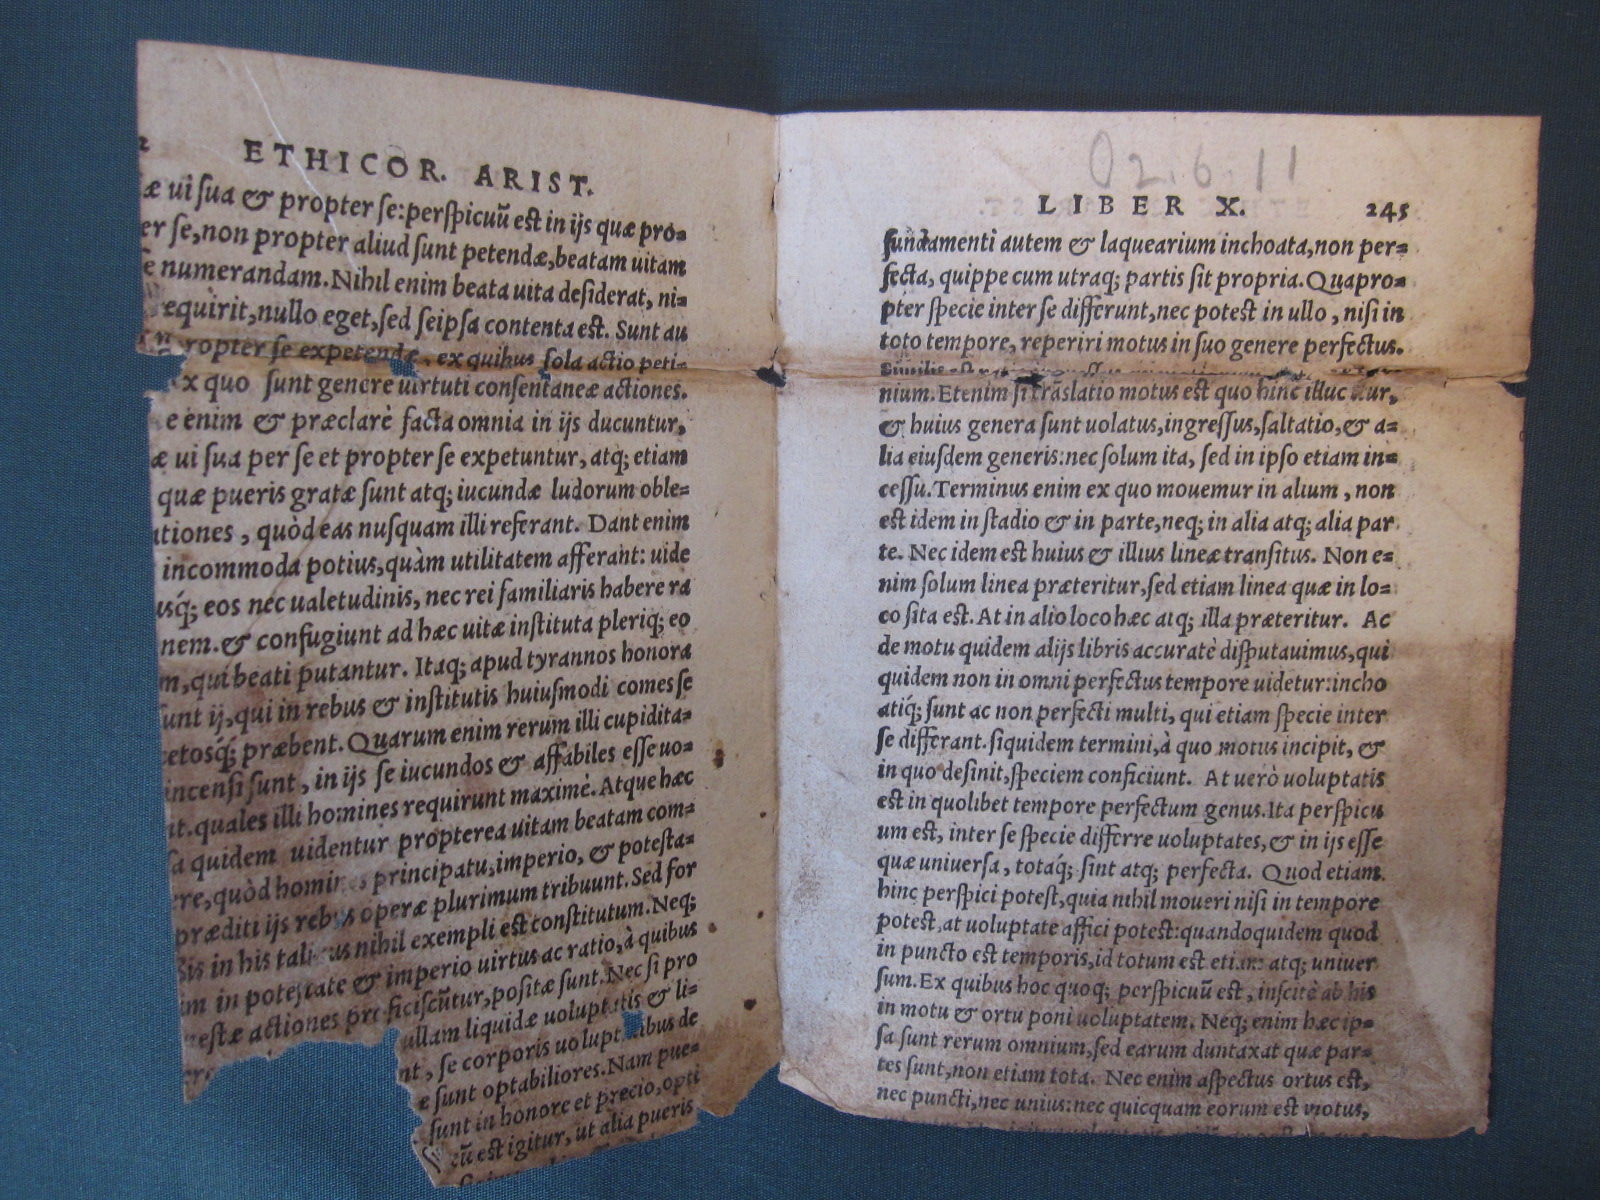 ETHICOR. ARIST.
æ ui sua & propter se: perspicuū est in ijs quæ pro=
er se, non propter aliud sunt petendæ, beatam uitam
e numerandam. Nihil enim beata uita desiderat, ni=
equirit, nullo eget, sed seipsa contenta est. Sunt au
ropter se expetendæ, ex quibus sola actio peti=
x quo sunt genere uirtuti consentaneæ actiones.
e enim & præclarè facta omnia in ijs ducuntur,
æ ui sua per se et propter se expetuntur, atq; etiam
quæ pueris gratæ sunt atq; iucundæ ludorum oble=
tiones, quòd eas nusquam illi referant. Dant enim
incommoda potius, quàm utilitatem afferant: uide
usq́; eos nec ualetudinis, nec rei familiaris habere ra
nem. & confugiunt ad hæc uitæ instituta pleriq; eo
m, qui beati putantur. Itaq; apud tyrannos honora
unt ij, qui in rebus & institutis huiusmodi comes se
cetosq́; præbent. Quarum enim rerum illi cupidita=
incensi sunt, in ijs se iucundos & affabiles esse uo=
nt. quales illi homines requirunt maximè. Atque hæc
sa quidem uidentur propterea uitam beatam com=
ere, quòd homin s principatu, imperio, & potesta=
præditi ijs rebus operæ plurimum tribuunt. Sed for
sis in his tali us nihil exempli est constitutum. Neq;
im in potestate & imperio uirtus ac ratio, à quibus
estæ actiones pro ficiscūtur, positæ sunt. Nec si pro
ullam liquidæ uoluptatis & li=
nt, se corporis uolupt ibus de
e sunt optabiliores. Nam pue=
sunt in honore et precio, opti
cū est igitur, ut alia pueris
02.6.11
LIBER X. 245
fundamenti autem & laquearium inchoata, non per=
fecta, quippe cum utraq; partis sit propria. Quapro=
pter specie inter se differunt, nec potest in ullo, nisi in
toto tempore, reperiri motus in suo genere perfectus.
Similis est
nium. Etenim si trāslatio motus est quo hinc illuc itur,
& huius genera sunt uolatus, ingressus, saltatio, & a=
lia eiusdem generis: nec solum ita, sed in ipso etiam in=
cessu. Terminus enim ex quo mouemur in alium, non
est idem in stadio & in parte, neq; in alia atq; alia par
te. Nec idem est huius & illius lineæ transitus. Non e=
nim solum linea præteritur, sed etiam linea quæ in lo=
co sita est. At in alio loco hæc atq; illa præteritur. Ac
de motu quidem alijs libris accuratè disputauimus, qui
quidem non in omni perfectus tempore uidetur: incho
atiq́; sunt ac non perfecti multi, qui etiam specie inter
se differant. siquidem termini, à quo motus incipit, &
in quo desinit, speciem conficiunt. At uerò uoluptatis
est in quolibet tempore perfectum genus. Ita perspicu
um est, inter se specie differre uoluptates, & in ijs esse
quæ uniuersa, totaq́; sint atq; perfecta. Quod etiam
hinc perspici potest, quia nihil moueri nisi in tempore
potest, at uoluptate affici potest: quandoquidem quod
in puncto est temporis, id totum est etiam atq; uniuer
sum. Ex quibus hoc quoq; perspicuū est, inscitè ab his
in motu & ortu poni uoluptatem. Neq; enim hæc ip=
sa sunt rerum omnium, sed earum duntaxat quæ par=
tes sunt, non etiam tota. Nec enim aspectus ortus est,
nec puncti, nec unius: nec quicquam eorum est motus,